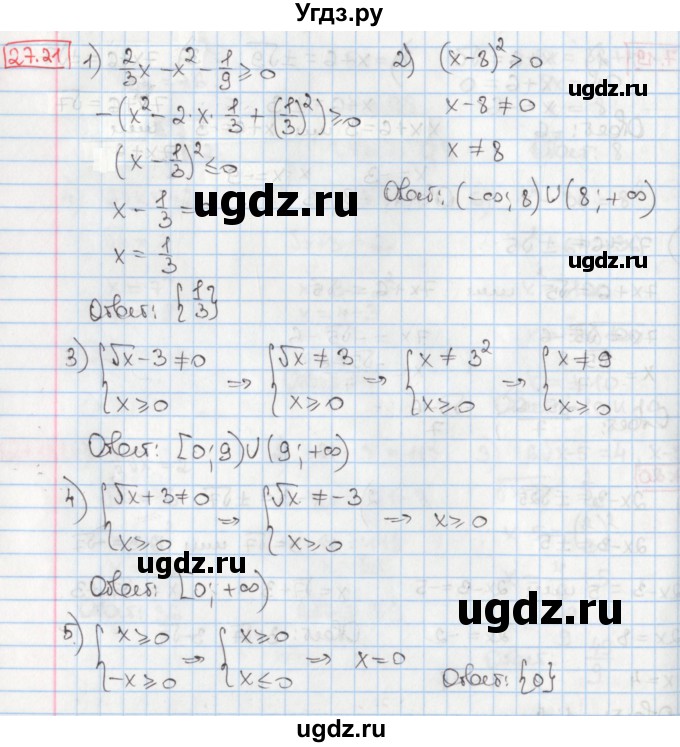 Угдз.ру
27.21
1) 2/3 x - x² - 1/9 ≥ 0
-(x² - 2·x·1/3 + (1/3)²) ≥ 0
(x - 1/3)² ≤ 0
x - 1/3 = 0
x = 1/3
Ответ: {1/3}
2) (x-8)² > 0
x - 8 ≠ 0
x ≠ 8
Ответ: (-∞; 8) ∪ (8; +∞)
ugdz.ru
ugdz.ru
ugdz.ru
3) { √x - 3 ≠ 0 ⇒ { √x ≠ 3 ⇒ { x ≠ 3² ⇒ { x ≠ 9
x ≥ 0 x ≥ 0 x ≥ 0 x ≥ 0
Ответ: [0; 9) ∪ (9; +∞)
4) { √x + 3 ≠ 0 ⇒ { √x ≠ -3 ⇒ x ≥ 0
x ≥ 0 x ≥ 0
ugdz.ru
Ответ: [0; +∞)
ugdz.ru
5.) { x ≥ 0 ⇒ { x ≥ 0 ⇒ x = 0
-x ≥ 0 x ≤ 0
Ответ: {0}
ugdz.ru